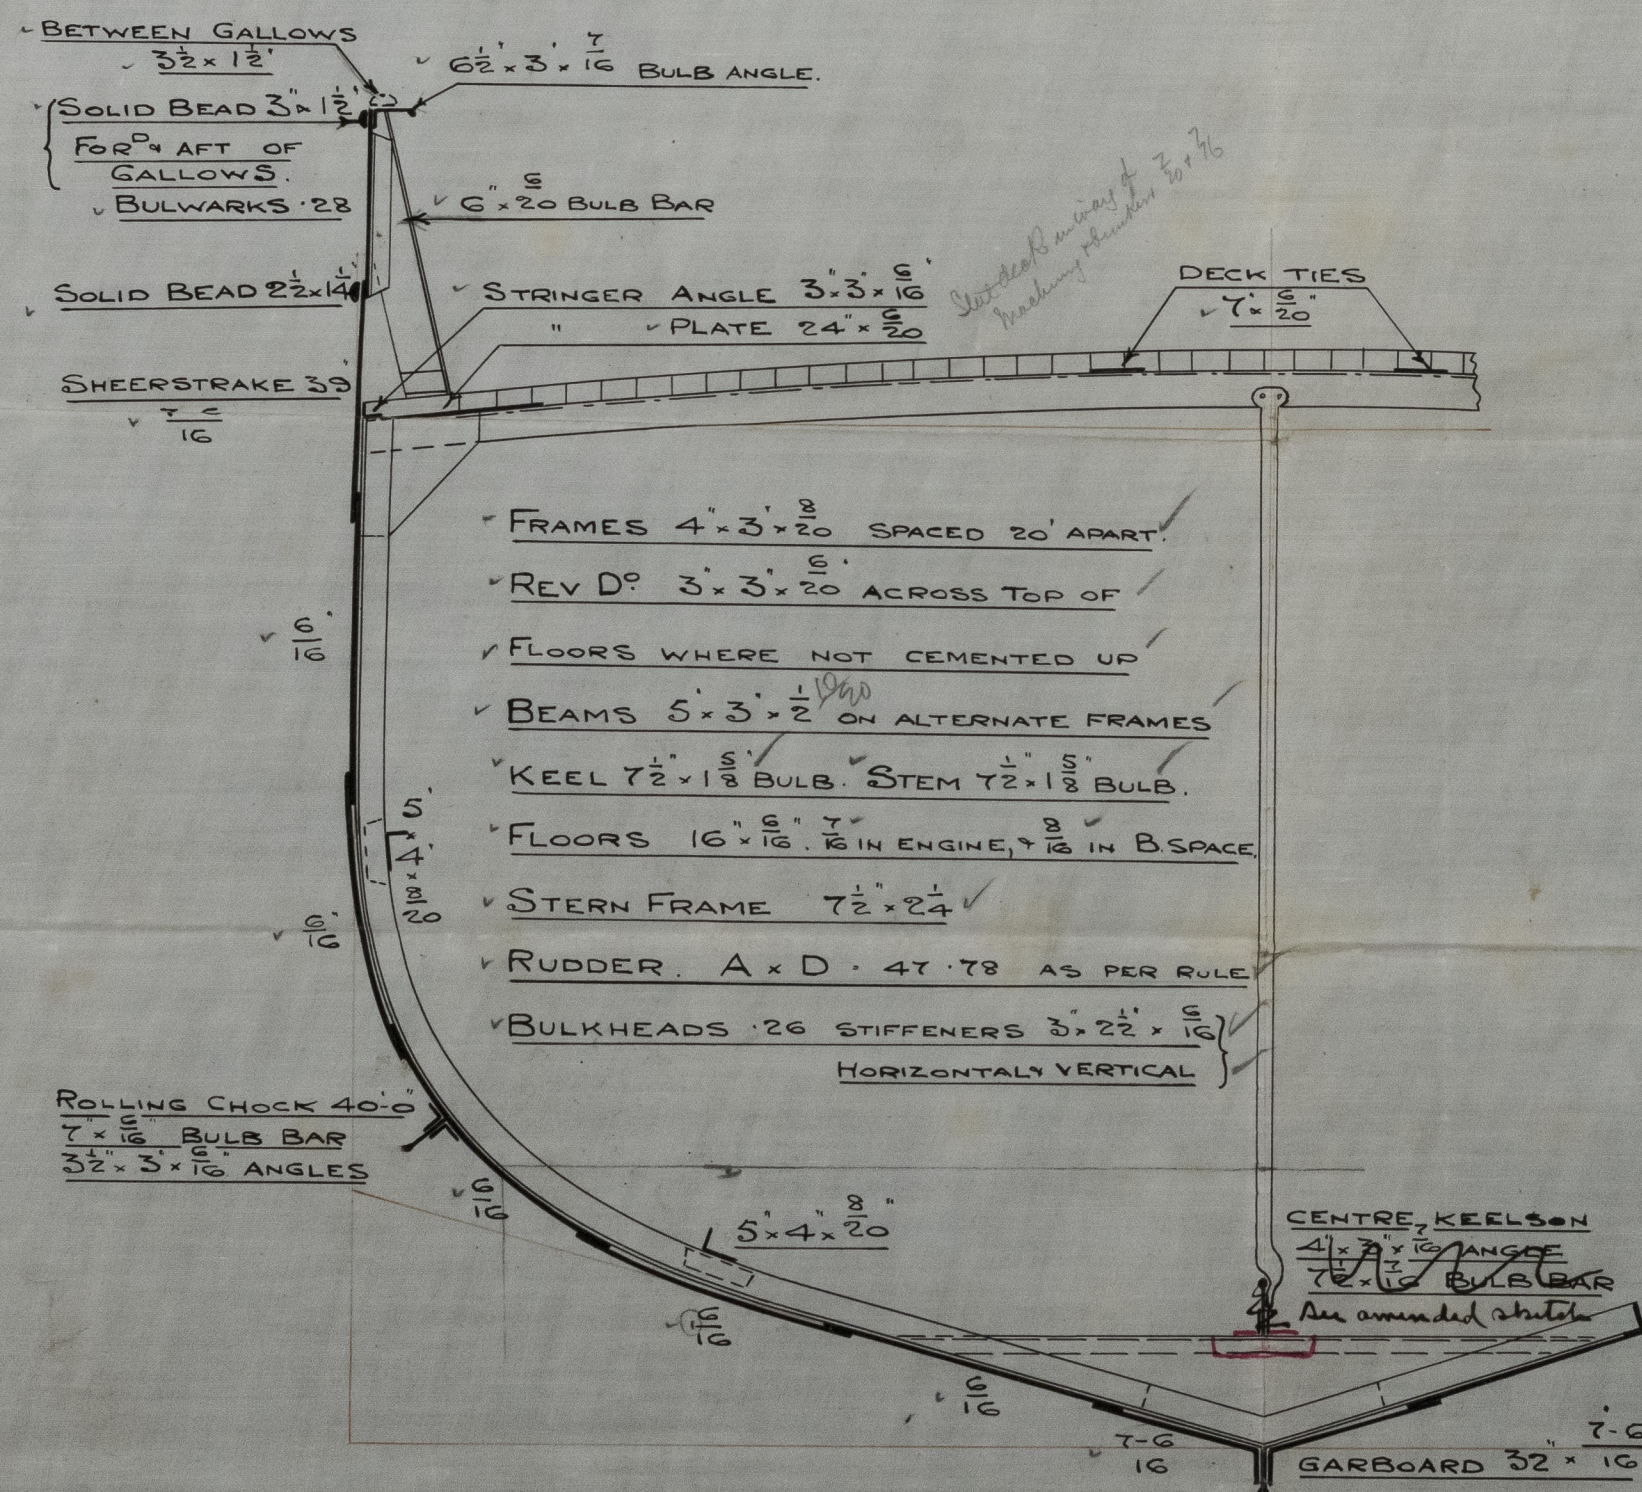 BETWEEN GALLOWS
3½ × 1½"
6½" × 3" × 7/16 BULB ANGLE.
SOLID BEAD 3" × 1½"
FORD & AFT OF
GALLOWS.
BULWARKS ·28
6" × 6/20 BULB BAR
SOLID BEAD 2½ × 1¼"
STRINGER ANGLE 3" × 3" × 6/16"
" PLATE 24" × 6/20
DECK TIES
7" × 6/20"
SHEERSTRAKE 39"
16
FRAMES 4" × 3" × 8/20 SPACED 20" APART.
REV Dº. 3" × 3" × 6/20" ACROSS TOP OF
FLOORS WHERE NOT CEMENTED UP
BEAMS 5" × 3" × ½ ON ALTERNATE FRAMES
KEEL 7½" × 1⅝ BULB. STEM 7½" × 1⅝ BULB.
FLOORS 16" × 6/16". 7/16 IN ENGINE, & 8/16 IN B. SPACE.
STERN FRAME 7½" × 2¼
RUDDER. A × D · 47·78 AS PER RULE
BULKHEADS ·26 STIFFENERS 3" × 2½" × 6/16
HORIZONTAL & VERTICAL
6/16"
5" × 4" × 8/20
6/16"
ROLLING CHOCK 40'-0"
7" × 6/16" BULB BAR
3½" × 3" × 6/16" ANGLES
6/16
5" × 4" × 8/20"
6/16
6/16
7-6/16
CENTRE KEELSON
4" × 3" × 7/16 ANGLE
7½ × 7/16 BULB BAR
See amended sketch
GARBOARD 32" × 7-6/16